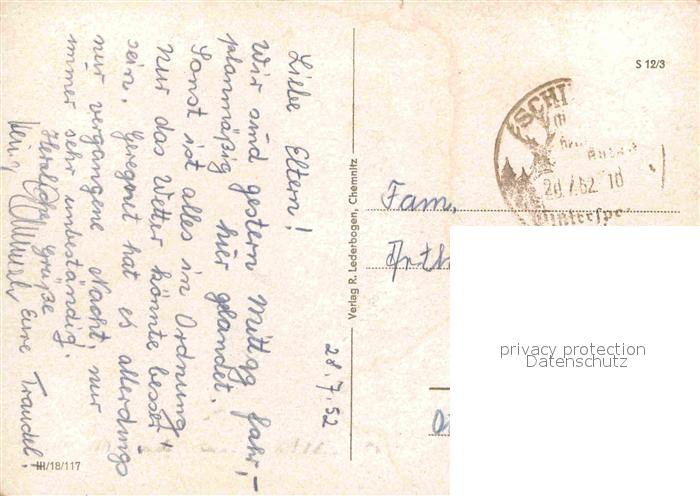 28.7.52
Liebe Eltern!
Wir sind gestern Mittag fahr-
planmäßig hier gelandet.
Sonst ist alles in Ordnung,
nur das Wetter könnte besser
sein. Geregnet hat es allerdings
nur vergangene Nacht, nur
immer sehr unbeständig.
Herzliche Grüße
Eure Traudel.
Verlag R. Lederbogen, Chemnitz
III/18/117
S 12/3
SCHI
Fam.
privacy protection
Datenschutz